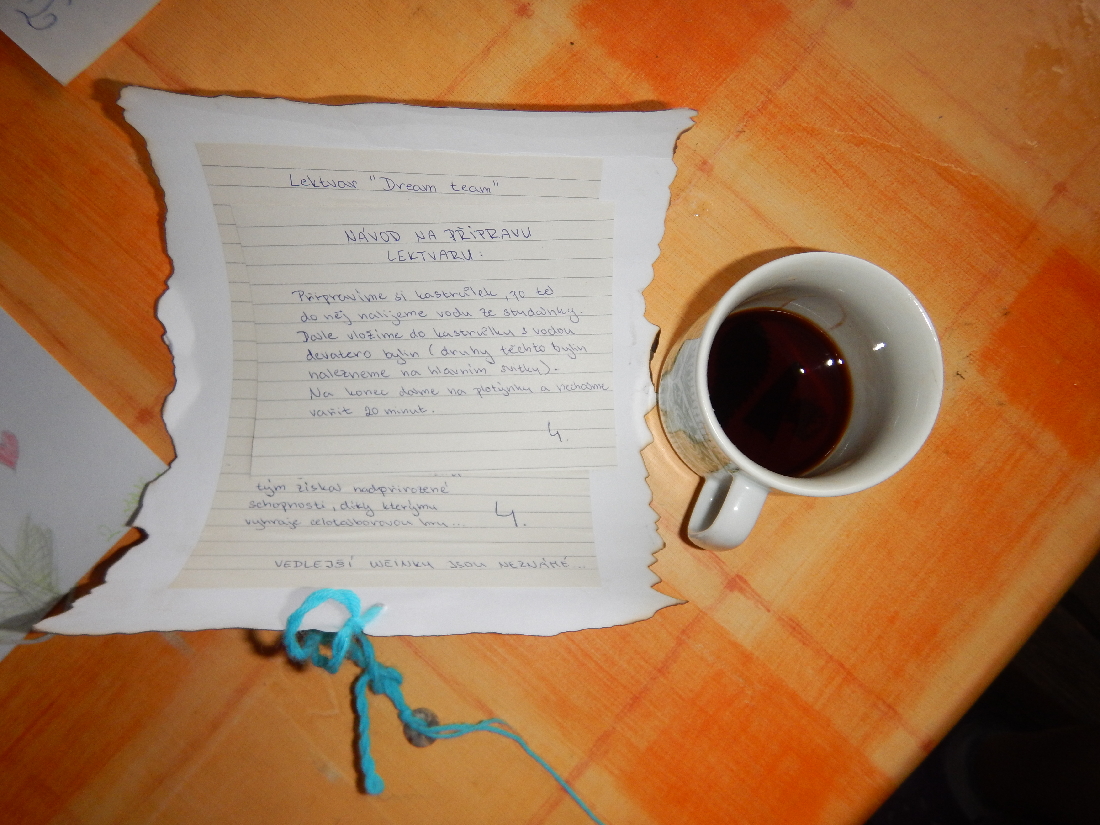 Lektvar "Dream team"
NÁVOD NA PŘÍPRAVU
LEKTVARU.
Připravíme si kastrůlek,
do něj nalijeme vodu ze studánky.
Dále vložíme do kastrůlku s vodou
devatero bylin (druhy těchto bylin
nalezneme na hlavním svitku).
Na konec dáme na plotýnku a necháme
vařit 20 minut.
4.
tým získal nadpřirozené
schopnosti, díky kterým
vyhraje celotáborovou hru...
4.
VEDLEJŠÍ ÚČINKY JSOU NEZNÁMÉ...